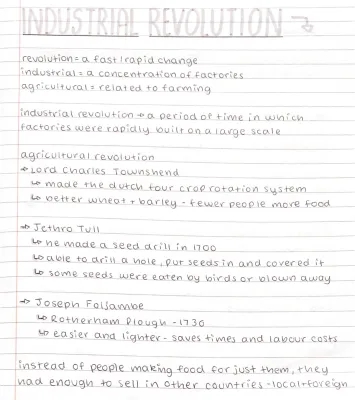 INDUSTRIAL REVOLUTION
revolution = a fast/rapid change
industrial = a concentration of factories
agricultural = related to farming
industrial revolution → a period of time in which
factories were rapidly built on a large scale
agricultural revolution
→ Lord Charles Townshend
↳ made the dutch four crop rotation system
↳ better wheat + barley - fewer people more food
→ Jethro Tull
↳ he made a seed drill in 1700
↳ able to drill a hole, put seeds in and covered it
↳ some seeds were eaten by birds or blown away
→ Joseph Foljambe
↳ Rotherham Plough - 1730
↳ easier and lighter - saves times and labour costs
instead of people making food for just them, they
had enough to sell in other countries - local + foreign